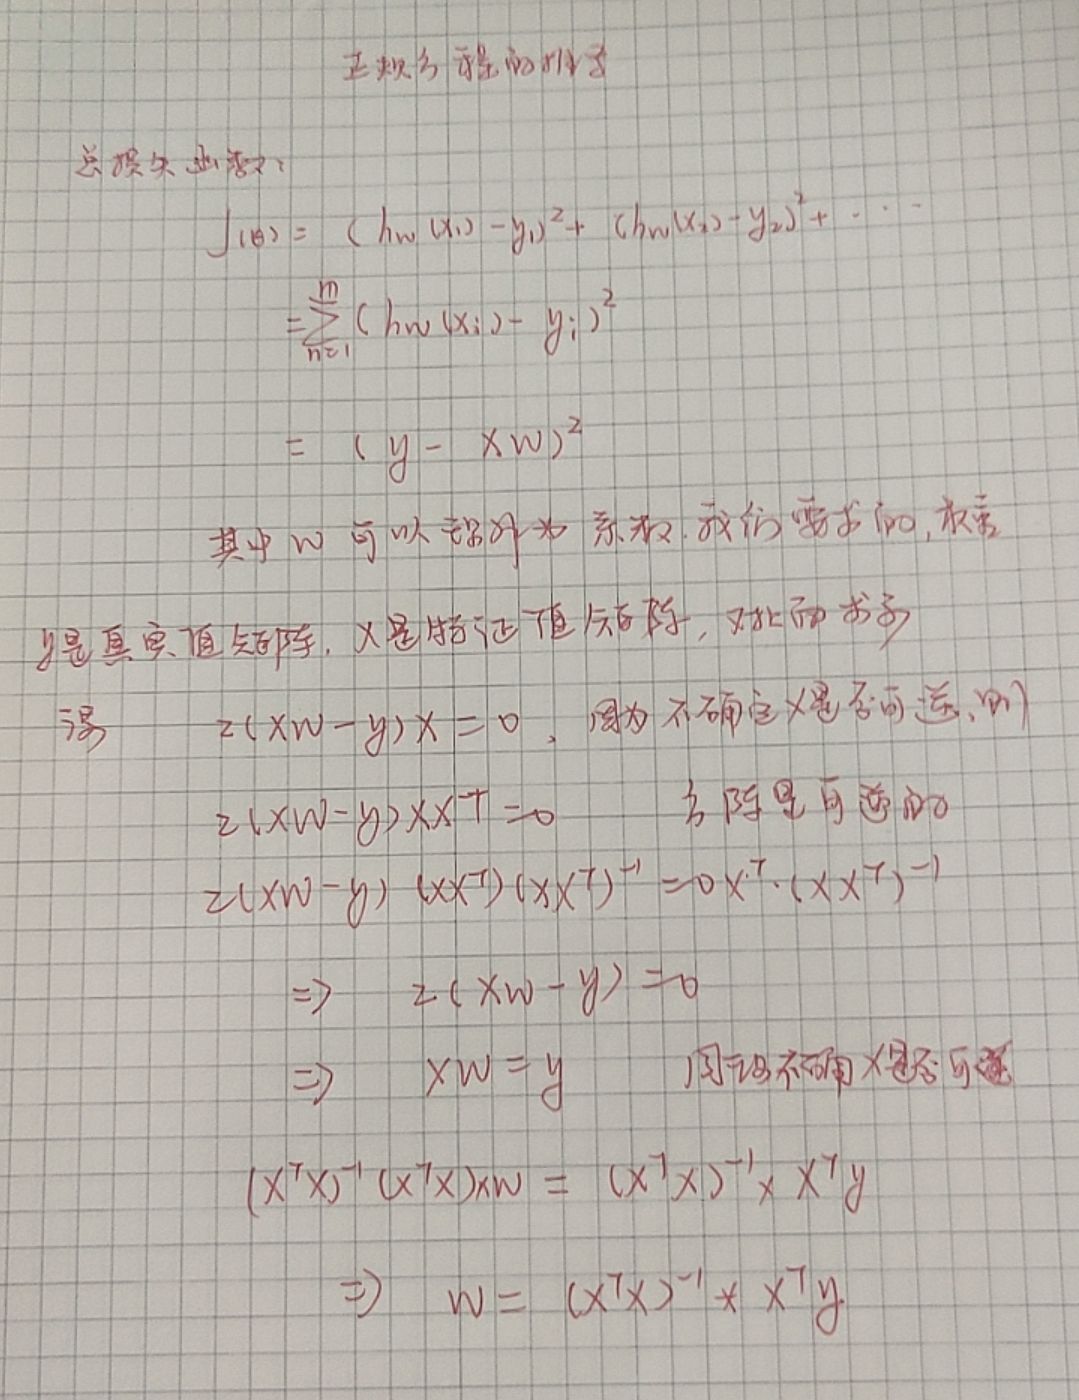 正规方程的推导
总损失函数:
J(θ) = (hw(x₁) - y₁)² + (hw(x₂) - y₂)² + ····
= Σᵐᵢ₌₁ (hw(xᵢ) - yᵢ)²
= (y - XW)²
其中 W 可以 为系数, 我们要求的, 权重
y是真实值矩阵, X是特征值矩阵, 对 求导
得 2(XW-y)X = 0, 因为不确定X是否可逆, 则
2(XW-y)XXᵀ = 0 方阵是可逆的
2(XW-y)(XXᵀ)(XXᵀ)⁻¹ = 0Xᵀ·(XXᵀ)⁻¹
=> 2(XW-y) = 0
=> XW = y 不确 X是否可逆
(XᵀX)⁻¹(XᵀX)XW = (XᵀX)⁻¹ * Xᵀy
=> W = (XᵀX)⁻¹ * Xᵀy